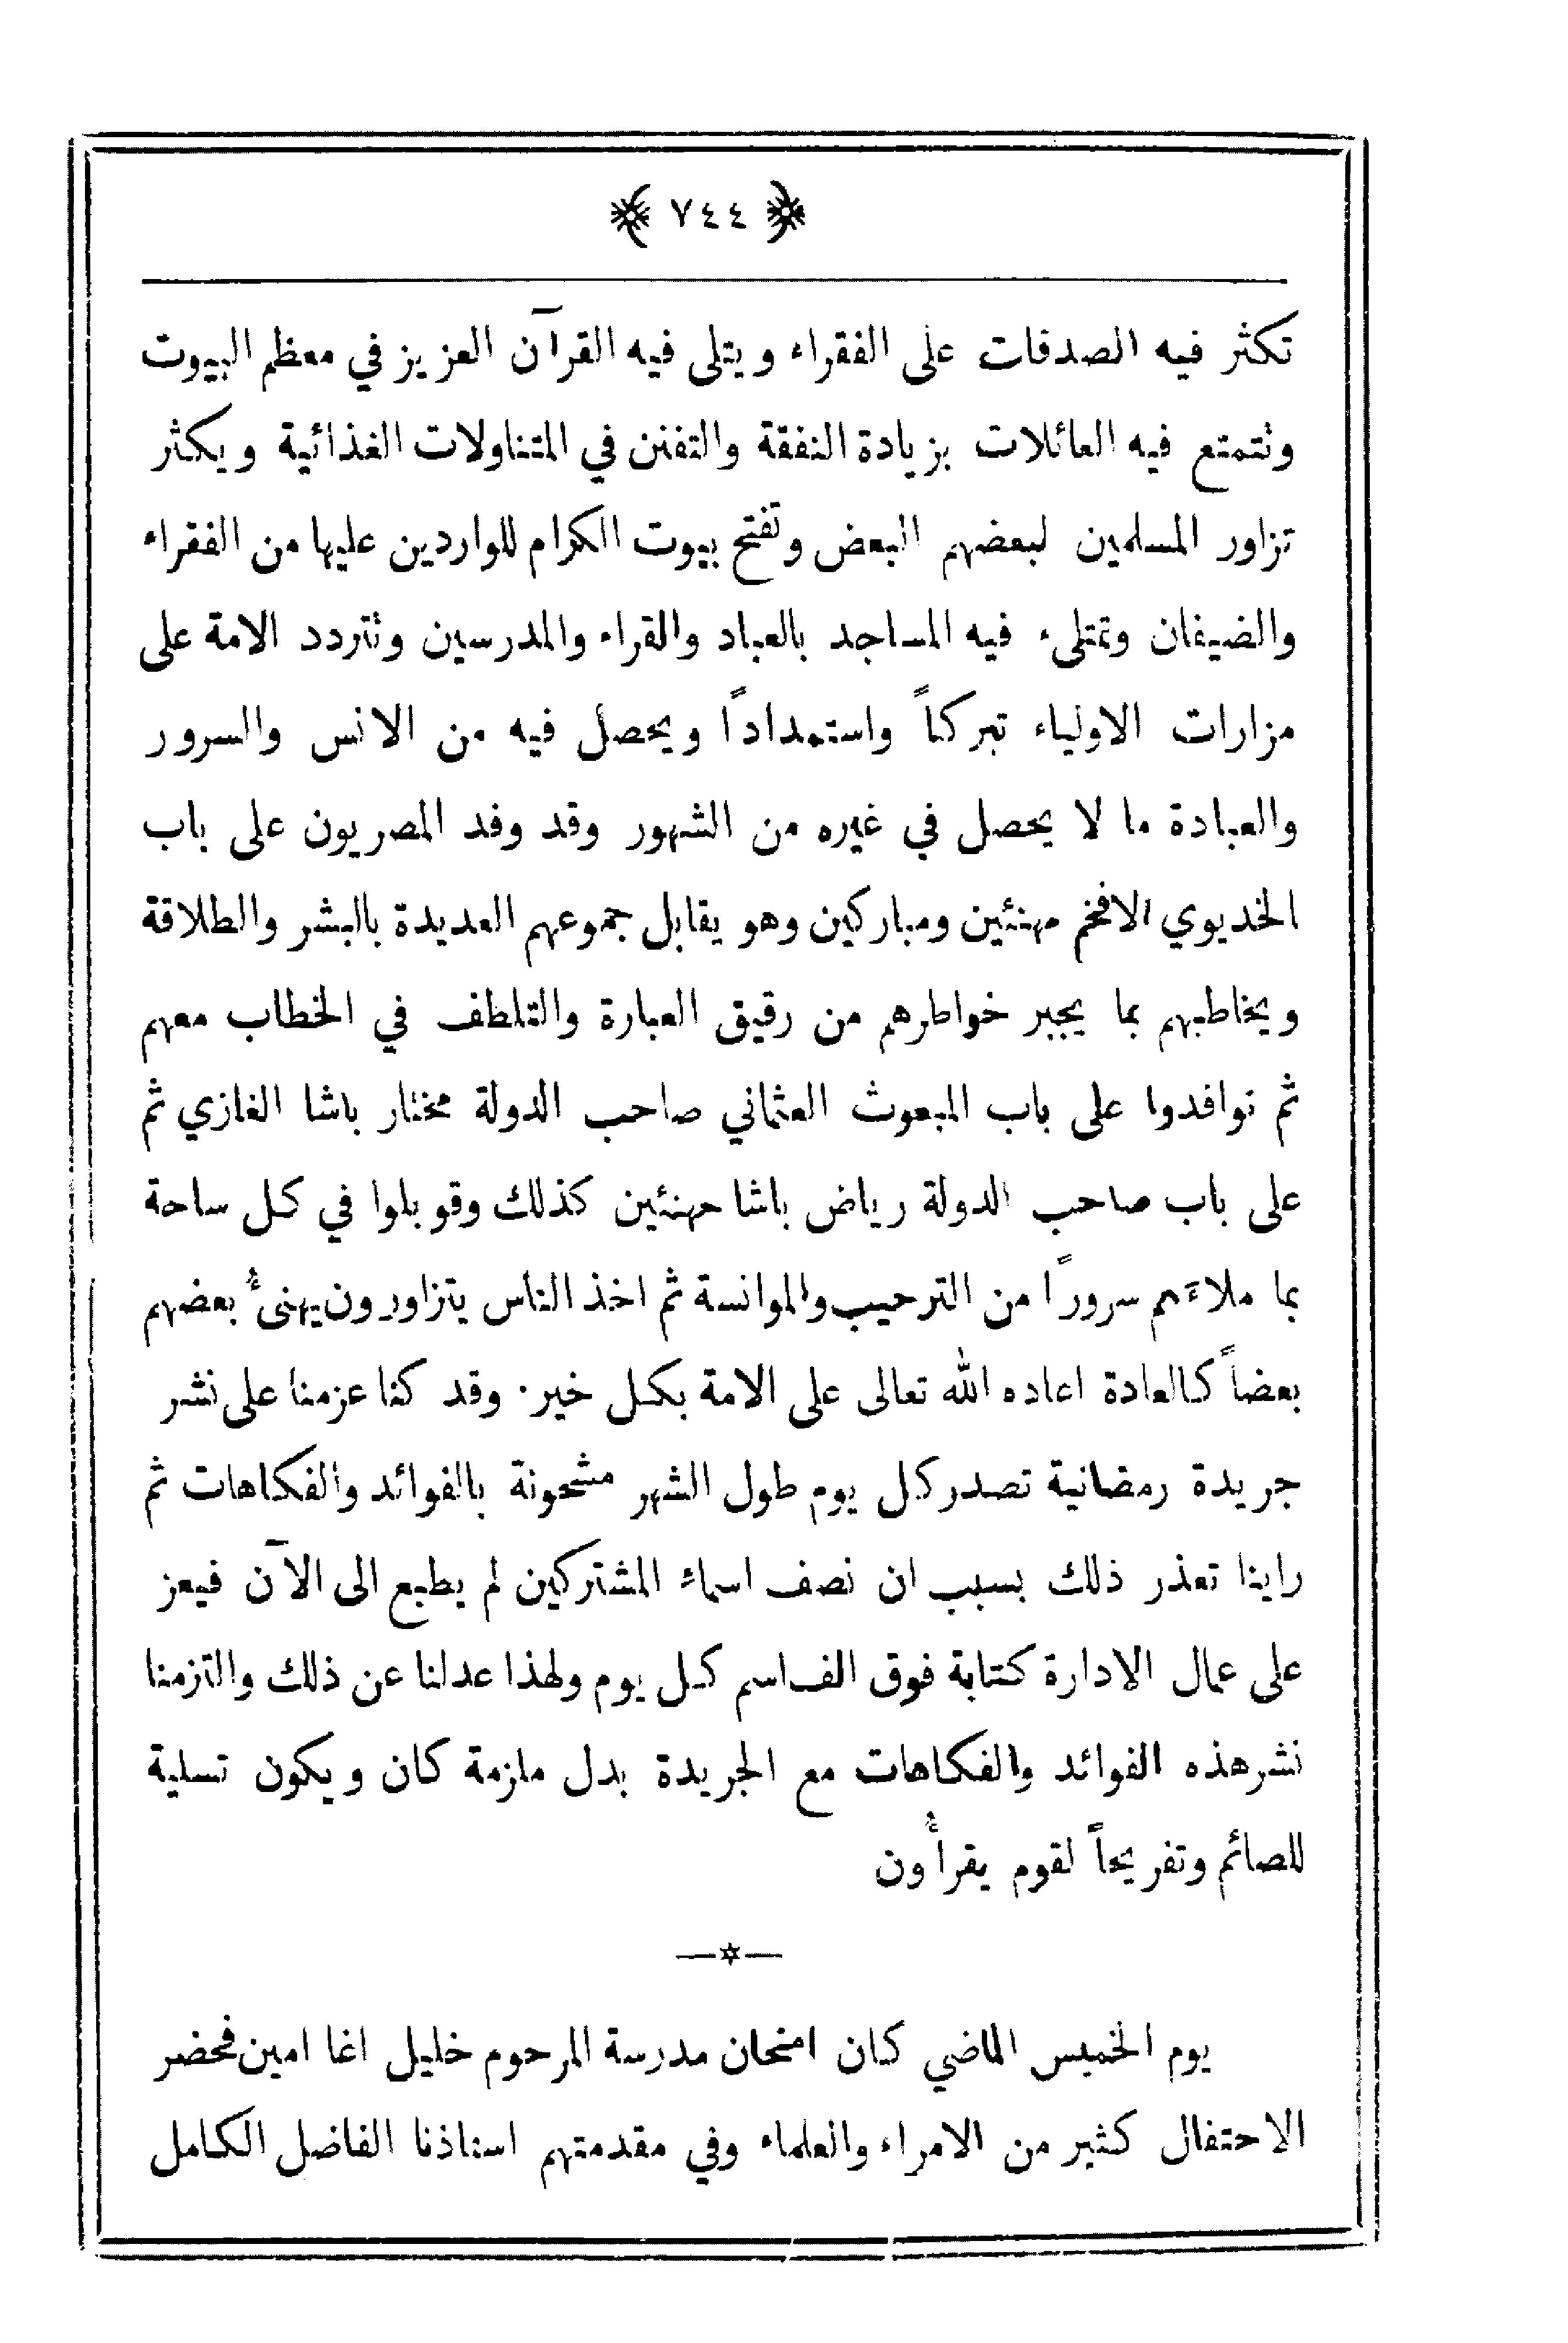 ﴿ ٧٤٤ ﴾
تكثر فيه الصدقات على الفقراء ويتلى فيه القرآن العزيز في معظم البيوت
وتتمتع فيه العائلات بزيادة النفقة والتفنن في المتناولات الغذائية ويكثر
تزاور المسلمين لبعضهم البعض وتفتح بيوت الكرام للواردين عليها من الفقراء
والضيفان وتمتلىء فيه المساجد بالعباد والقراء والمدرسين وتتردد الامة على
مزارات الاولياء تبركاً واستمدادًا ويحصل فيه من الانس والسرور
والعبادة ما لا يحصل في غيره من الشهور وقد وفد المصريون على باب
الخديوي الافخم مهنئين ومباركين وهو يقابل جموعهم العديدة بالبشر والطلاقة
ويخاطبهم بما يجبر خواطرهم من رقيق العبارة والتلطف في الخطاب معهم
ثم توافدوا على باب المبعوث العثماني صاحب الدولة مختار باشا الغازي ثم
على باب صاحب الدولة رياض باشا مهنئين كذلك وقوبلوا في كل ساحة
بما ملاءَهم سرورًا من الترحيب والموانسة ثم اخذ الناس يتزاورون يهنىُٔ بعضهم
بعضاً كالعادة اعاده الله تعالى على الامة بكل خير. وقد كنا عزمنا على نشر
جريدة رمضانية تصدر كل يوم طول الشهر مشحونة بالفوائد والفكاهات ثم
راينا تعذر ذلك بسبب ان نصف اسماءِ المشتركين لم يطبع الى الآن فيعز
على عمال الادارة كتابة فوق الف اسم كل يوم ولهذا عدلنا عن ذلك والتزمنا
نشر هذه الفوائد والفكاهات مع الجريدة بدل ملزمة كان ويكون تسلية
للصائم وتفريحاً لقوم يقرأُون
—✡—
يوم الخميس الماضي كان امتحان مدرسة المرحوم خليل اغا امين فحضر
الاحتفال كثير من الامراء والعلماء وفي مقدمتهم استاذنا الفاضل الكامل